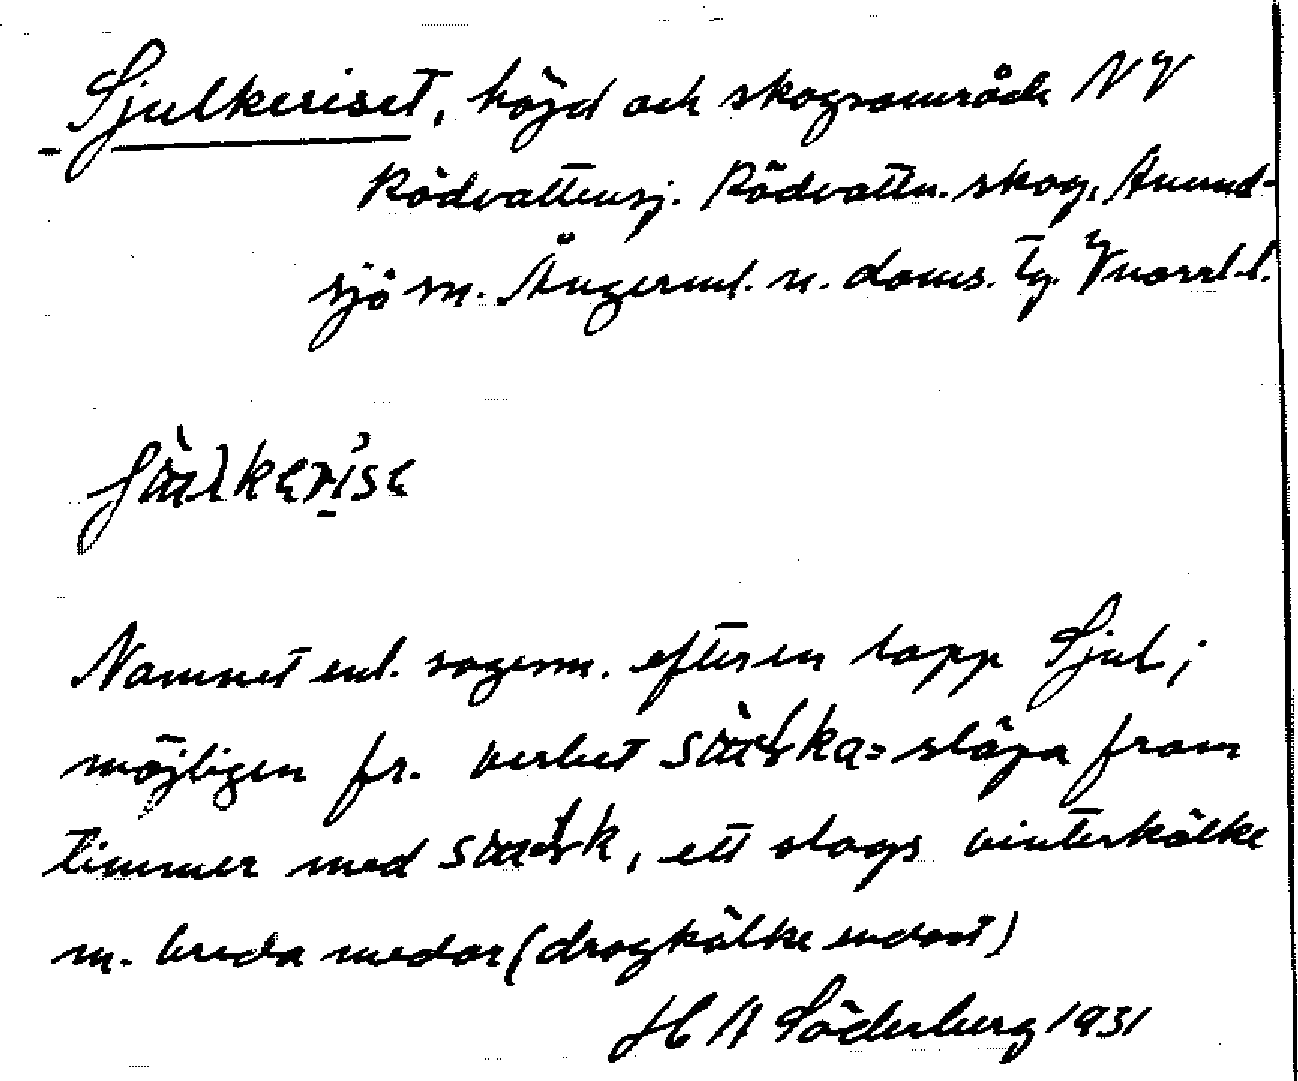 Sjulkeriset, höjd och skogsområde NV
Rödvattensj. Rödvattn. skog, Anund-
sjö sn. Ångerml. n. doms. tg. Vnorrl. l.
Namnet enl. sagesm. efter en lapp Sjul;
möjligen fr. verbet = släpa fram
timmer med , ett slags vinterkälke
m. breda medar (dragkälke endast)
H A Söderberg 1931